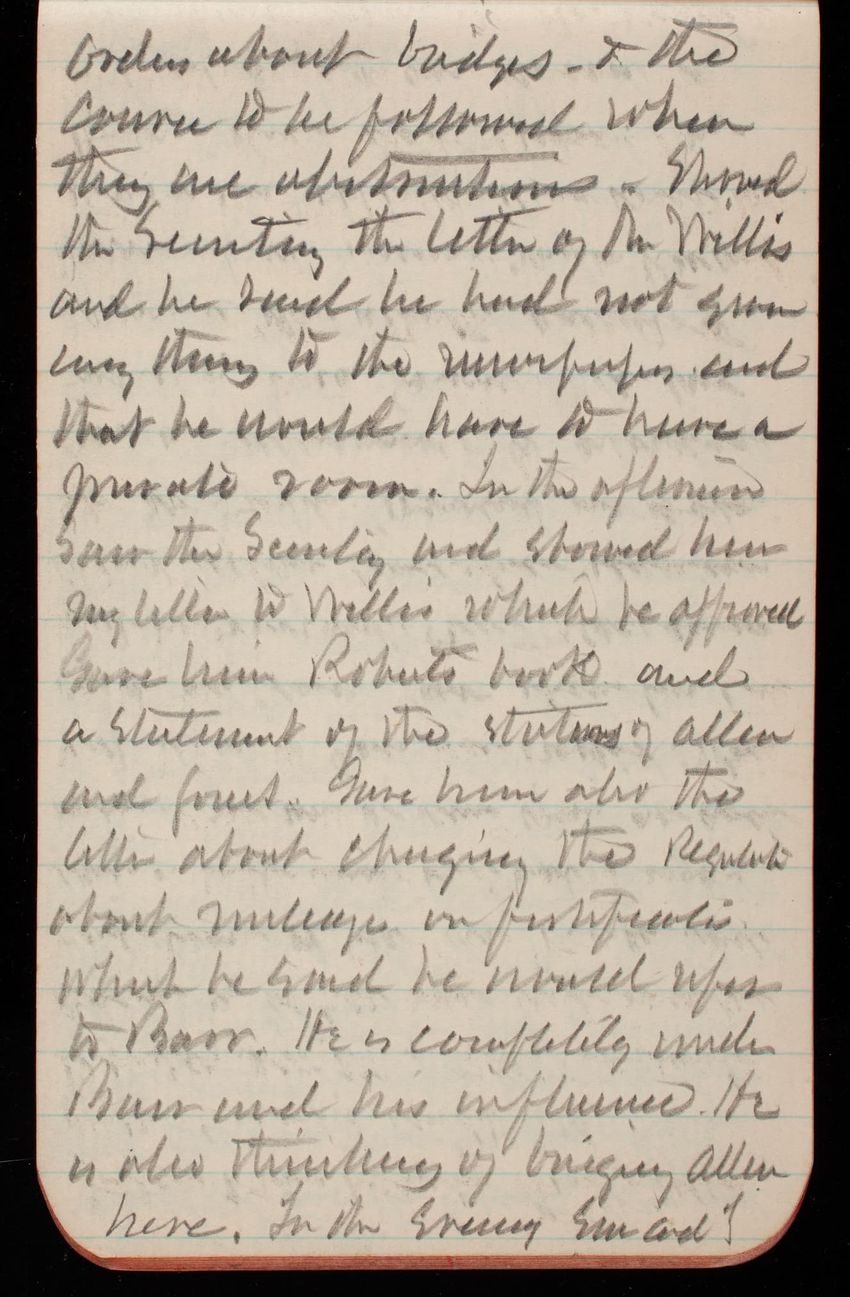 orders about bridges - & the
course to be followed when
they are obstructions - Showed
the Secretary the letter of Mr Willis
and he said he had not given
any thing to the newspapers and
that he would have to have a
private room. In the afternoon
saw the Secretary and showed him
my letter to Willis which he approved
Gave him Roberts book and
a statement of the status of Allen
and forces. Gave him also the
letter about changing the Regulati
about mileage in
which he said he would refer
to Barr. He is completely under
Barr and his influence. He
is also thinking of bringing Allen
here. In the Evening Em and I